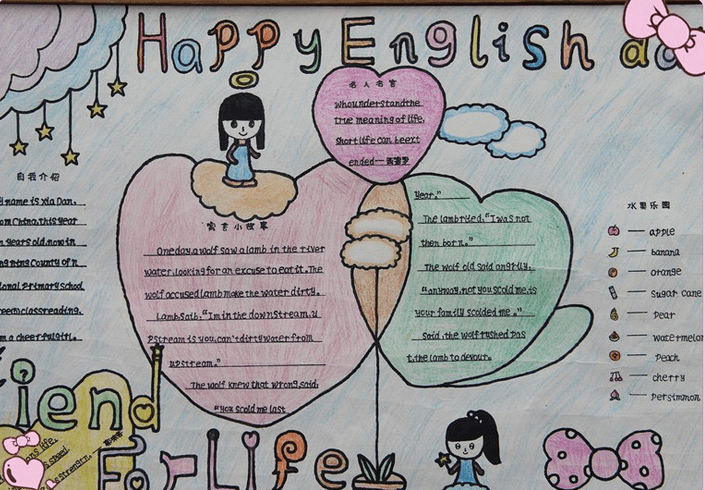 Happy English
名人名言
Whounderstandthe
true meaning of life,
Short life can beext
ended—
自我介绍
name is Xia Dan.
om China.this year
years old.now in
County of n
ional primary school
class reading.
m a cheerful girl.
寓言小故事
One day,a wolf saw a lamb in the river
water.looking for an excuse to eat it. The
wolf accused lamb make the water dirty.
Lamb saib."Im in the downstream.u
Pstream is you.can't dirty water from
upstream."
The wolf knew that wrong.said:
"you scold me last
year."
The lamb ried."I was not
then born."
The wolf old said angrily.
"anyway.not you scold me.is
your family scolded me."
Said.the wolf rushed pas
t.the lamb to devour.
水果乐园
— apple
— banana
— orange
— Sugar cane
— Pear
— watermelon
— Peach
— cherry
— Persimmon
iend
For Life
ns life,
strength.